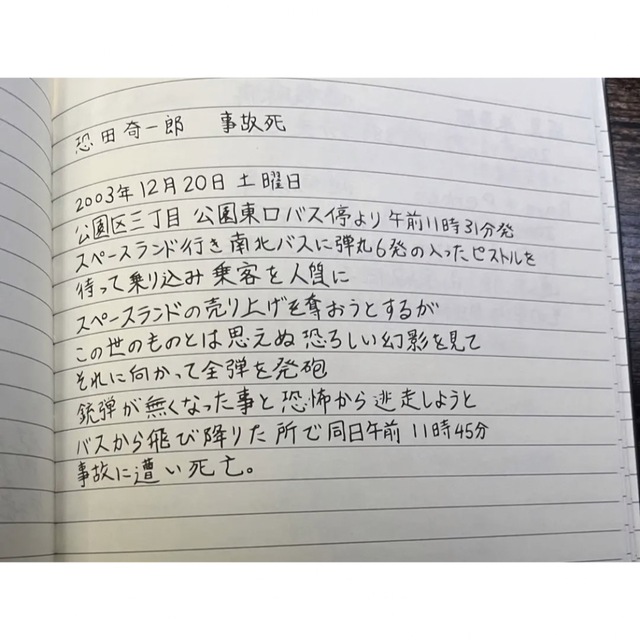 恐田奇一郎 事故死
2003年12月20日 土曜日
公園区三丁目 公園東口バス停より 午前11時31分発
スペースランド行き 南北バスに弾丸6発の入ったピストルを
待って乗り込み 乗客を人質に
スペースランドの売り上げを奪おうとするが
この世のものとは思えぬ恐ろしい幻影を見て
それに向かって全弾を発砲
銃弾が無くなった事と恐怖から逃走しようと
バスから飛び降りた所で同日午前 11時45分
事故に遭い死亡。